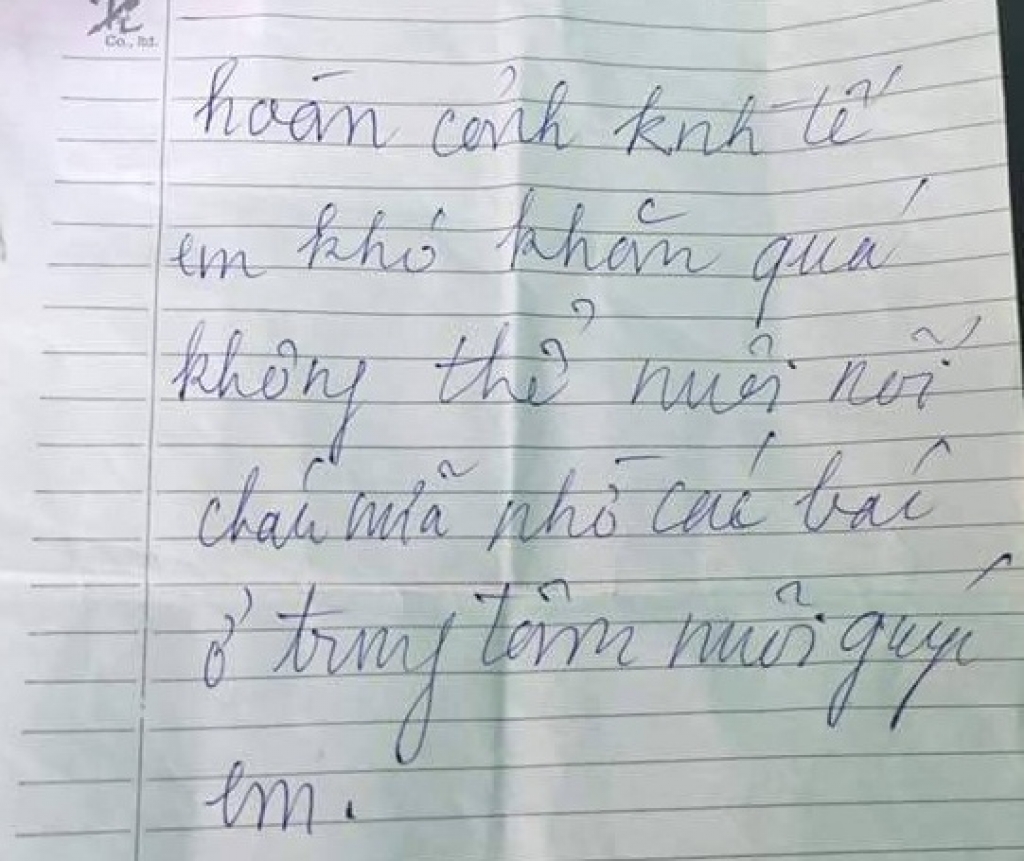 Co., ltd.
hoàn cảnh knh tế
em khó khăn quá
không thể nuôi nỗi
cháu nữa nhờ các bác
ở trung tâm nuôi giúp
em.